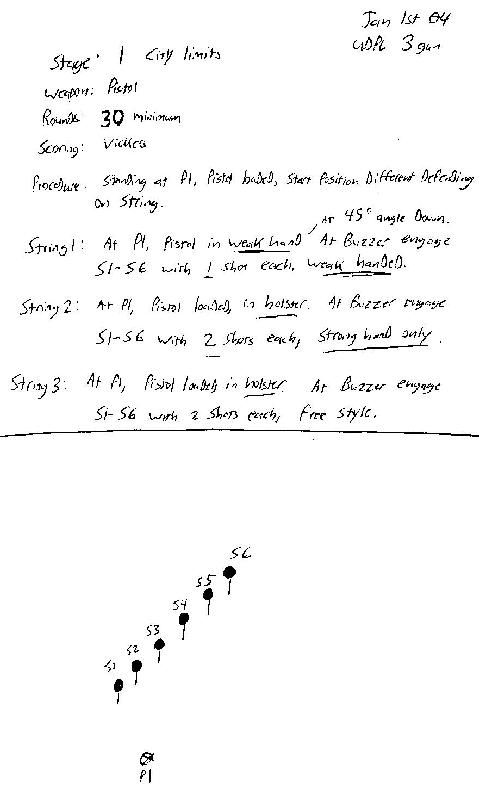 Jan 1st 04
UDPL 3 gun
Stage: 1 City limits
Weapon: Pistol
Rounds 30 minimum
Scoring: Vickers
Procedure. Standing at P1, Pistol loaded, Start Position Different Depending
on String.
At 45° angle Down.
String 1: At P1, Pistol in weak hand At Buzzer engage
S1-S6 with 1 shot each, weak handed.
String 2: At P1, Pistol loaded, in holster. At Buzzer engage
S1-S6 with 2 shots each, Strong hand only.
String 3: At P1, Pistol loaded in holster. At Buzzer engage
S1-S6 with 2 shots each, free style.
S6
S5
S4
S3
S2
S1
P1